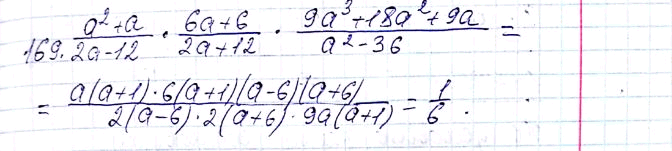 169. (a²+a)/(2a-12) · (6a+6)/(2a+12) · (9a³+18a²+9a)/(a²-36) =
= (a(a+1)·6(a+1)(a-6)(a+6))/(2(a-6)·2(a+6)·9a(a+1)) = 1/6.